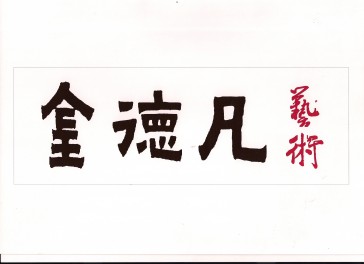 金德凡
藝術